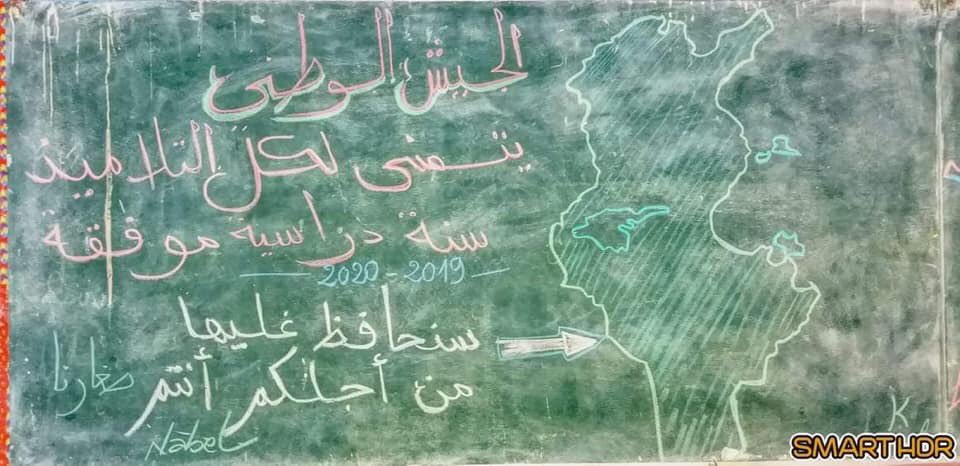 الجيش الوطني
يتمنى لكل التلاميذ
سنة دراسية موفقة
2020 - 2019
سنحافظ عليها
من أجلكم أنتم
صغارنا
Nabel
K
SMART HDR